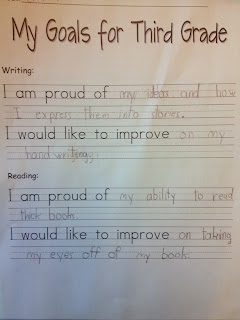 My Goals for Third Grade
Writing:
I am proud of my ideas and how
I express them into stories.
I would like to improve on my
handwriting.
Reading:
I am proud of my ability to read
thick book.
I would like to improve on taking
my eyes off of my book.